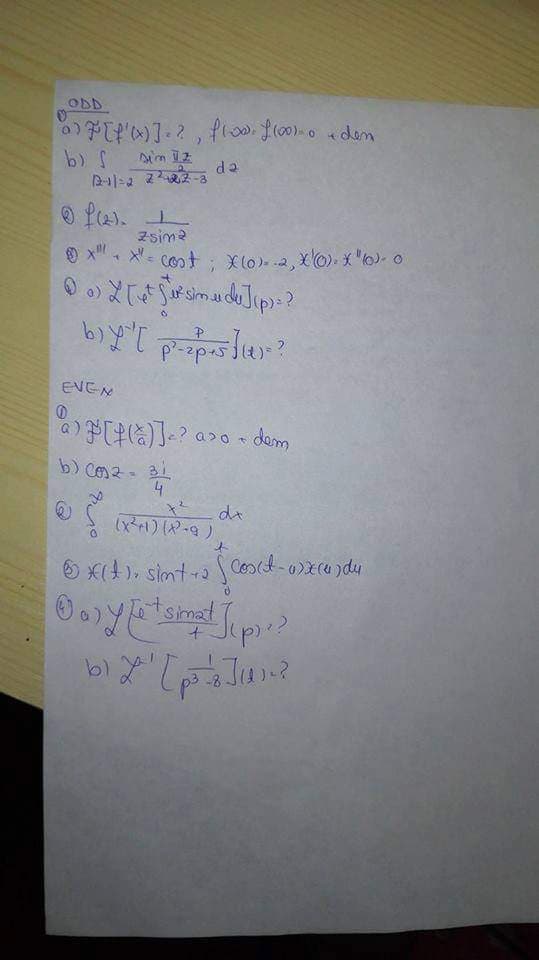 ODD
① a) F[f'(x)] = ?, f(-∞) = f(∞) = 0 + dem
b) ∫|z-1|=2 sin πz/2 / z²+2z-3 dz
② f(z) = 1 / z sin z
③ x''' + x'' = cos t ; x(0) = -2, x'(0) = x''(0) = 0
④ a) L[e^t ∫₀^t u² sin u du](p) = ?
b) L⁻¹[p / p²-2p+5](t) = ?
EVEN
① a) F[f(x/a)] = ? a>0 + dem
b) cos z = 3i/4
② ∫₀^∞ x² / (x²+1)(x²+9) dx
③ x(t) = sin t + 2 ∫₀^t cos(t-u) x(u) du
④ a) L[e^-t sin 2t / t](p) = ?
b) L⁻¹[1 / p³-8](t) = ?